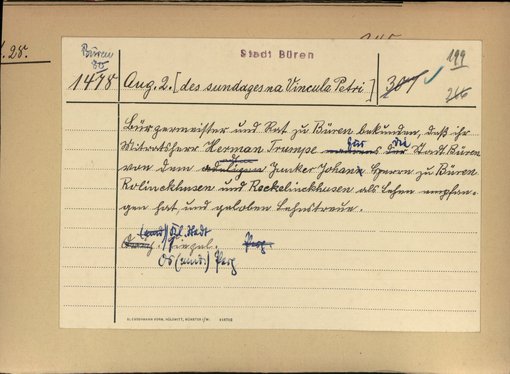 Stadt Büren
Büren
199
1478
Aug. 2. [des sundages na Vincula Petri]
307
266
Bürgermeister und Rat zu Büren bekunden, daß ihr
Mitratsherr Herman Trumpe für die Stadt Büren
von dem Junker Johann Herrn zu Büren
Rolinckhusen und Rockelinckhusen als Lehen empfan-
gen hat, und geloben Lehnstreue.
Siegel. Perg.
Perg